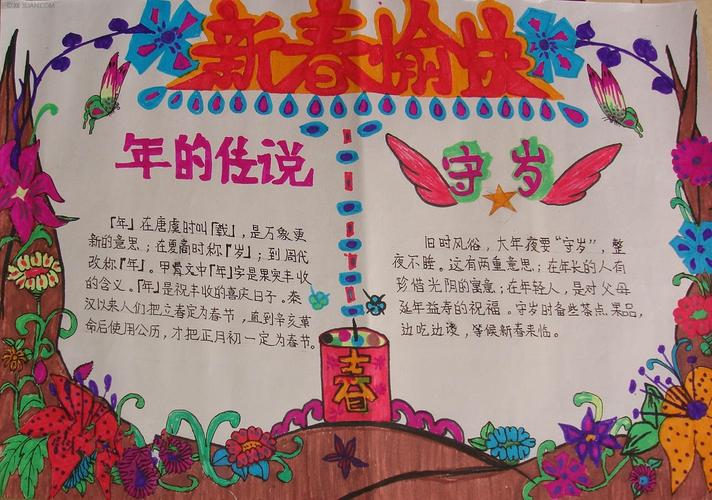 新春愉快
年的传说
『年』在唐虞时叫『载』，是万象更
新的意思；在夏商时称『岁』；到周代
改称『年』。甲骨文中『年』字是果实丰收
的含义。『年』是祝丰收的喜庆日子。秦
汉以来人们把立春定为春节，直到辛亥革
命后使用公历，才把正月初一定为春节。
守岁
旧时风俗，大年夜要"守岁"，整
夜不睡。这有两重意思：在年长的人有
珍惜光阴的寓意；在年轻人，是对父母
延年益寿的祝福。守岁时备些茶点果品，
边吃边谈，等候新春来临。
春